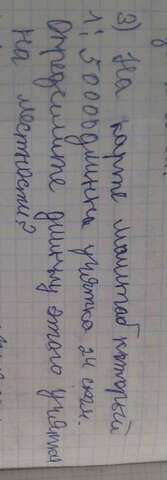 3) На карте масштаб который
1: 50000 длинна учятка 24 см.
Определите длину этого учятка
на местности?